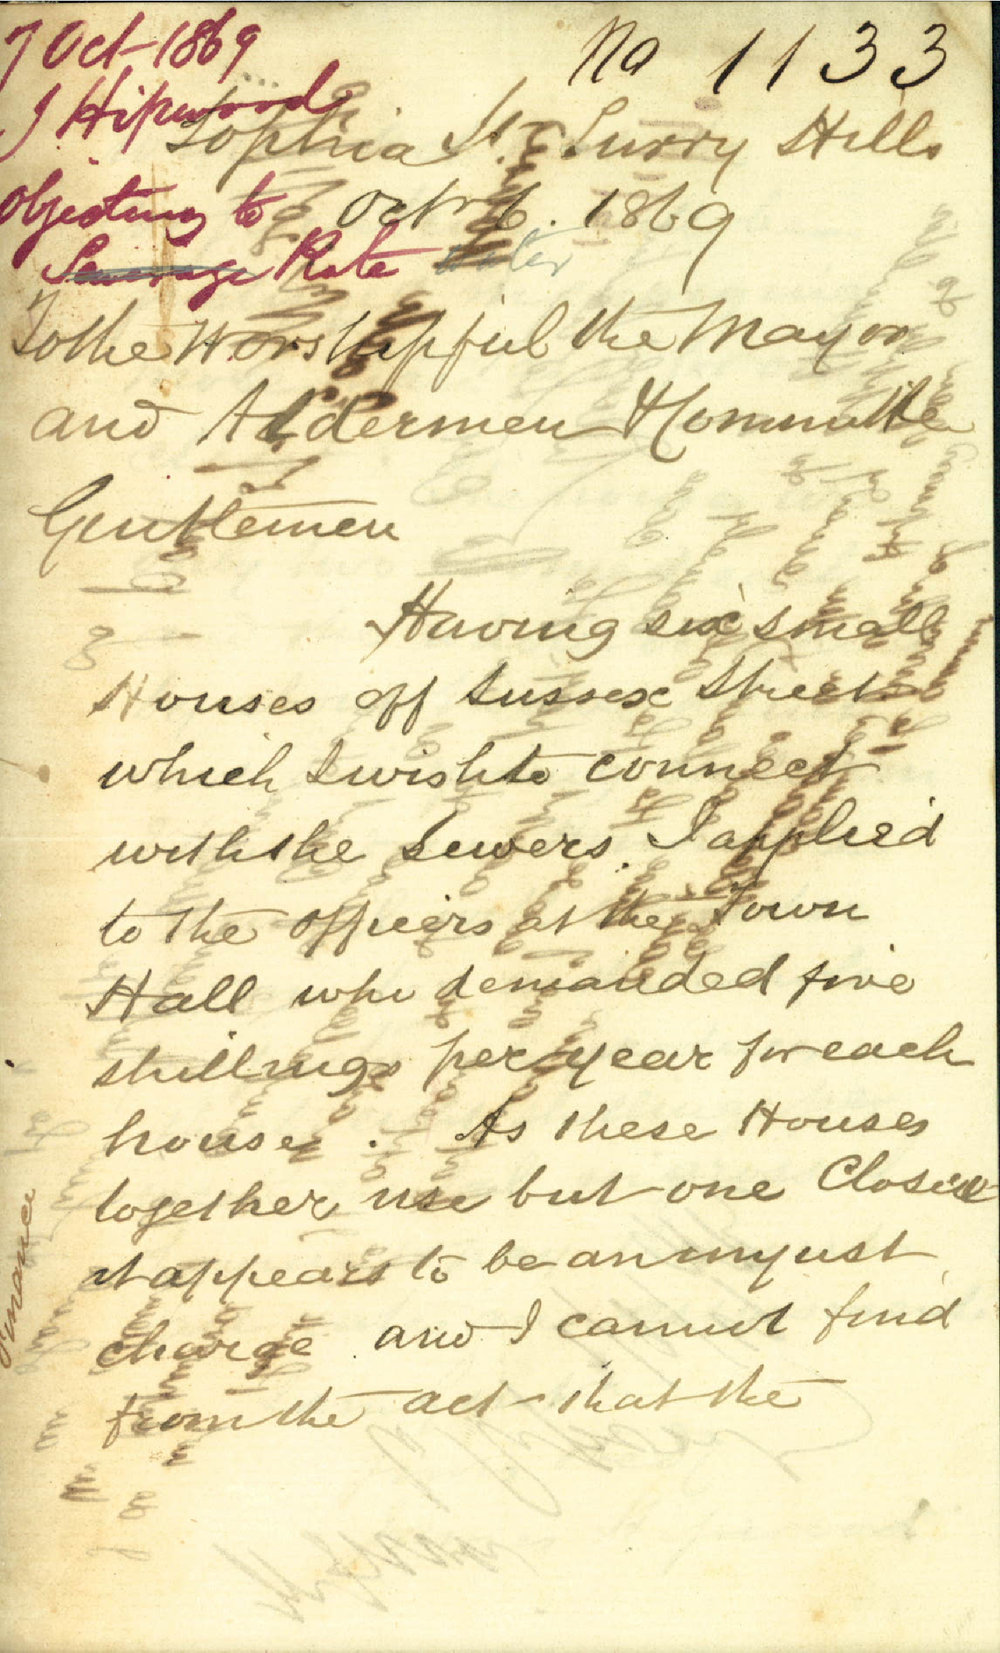 7 Oct 1869
No 1133
J Hipwood
Sophia St. Surry Hills
Objecting to
Octr 6. 1869
Sewerage Rate
To the Worshipful the Mayor
and Aldermen & Committee
Gentlemen
Having six small
Houses off Sussex Street
which I wish to connect
with the Sewers. I applied
to the officers at the Town
Hall who demanded five
shillings per year for each
house. As these Houses
together use but one Closet
it appears to be an unjust
charge and I cannot find
from the act that the